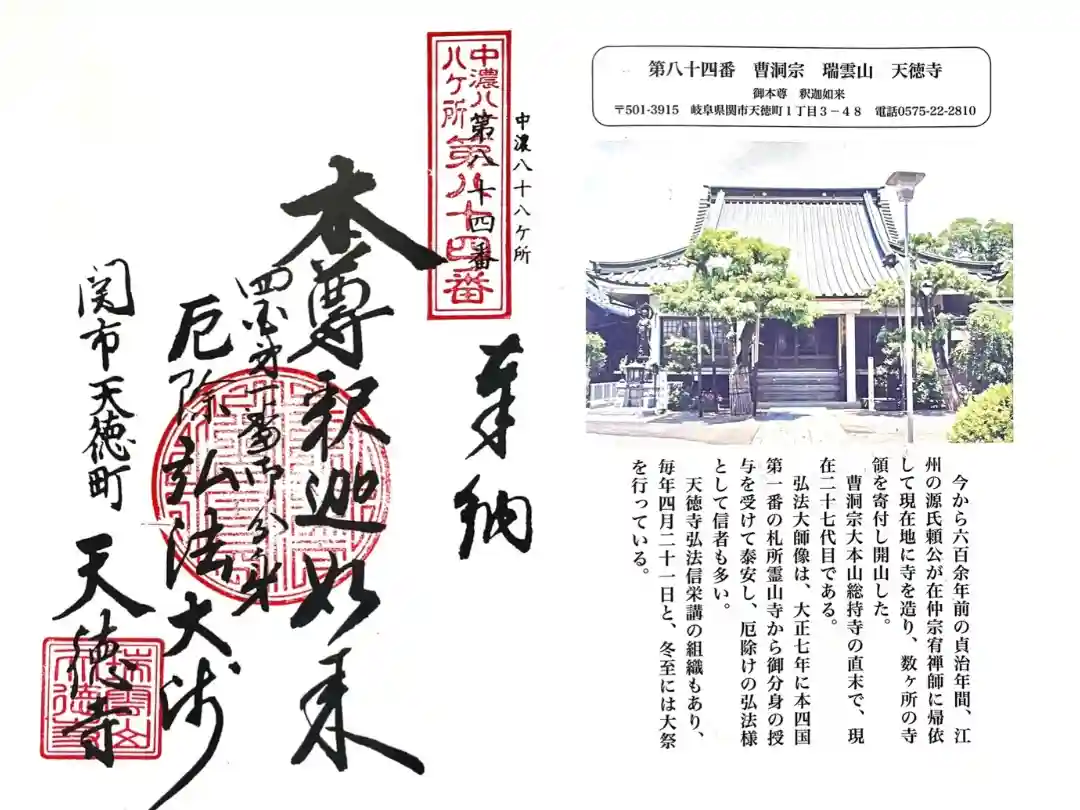 中濃八十八ケ所
中濃八
八ケ所第八十四番
第八十四番
奉納
本尊釈迦如来
四国第一番御分身
厄除弘法大師
関市天徳町
天徳寺
瑞雲山
天徳寺
第八十四番　曹洞宗　瑞雲山　天徳寺
御本尊　釈迦如来
〒501-3915　岐阜県関市天徳町１丁目３－４８　電話0575-22-2810
今から六百余年前の貞治年間、江
州の源氏頼公が在仲宗宥禅師に帰依
して現在地に寺を造り、数ヶ所の寺
領を寄付し開山した。
曹洞宗大本山総持寺の直末で、現
在二十七代目である。
弘法大師像は、大正七年に本四国
第一番の札所霊山寺から御分身の授
与を受けて奉安し、厄除けの弘法様
として信者も多い。
天徳寺弘法信栄講の組織もあり、
毎年四月二十一日と、冬至には大祭
を行っている。